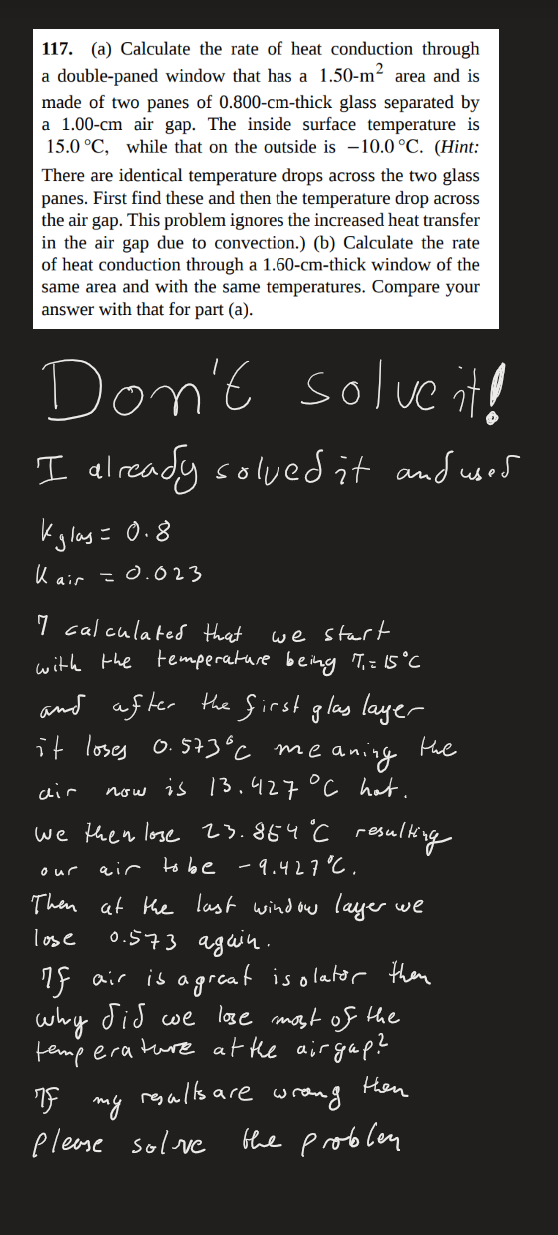 117. (a) Calculate the rate of heat conduction through
a double-paned window that has a 1.50-m² area and is
made of two panes of 0.800-cm-thick glass separated by
a 1.00-cm air gap. The inside surface temperature is
15.0 °C, while that on the outside is −10.0 °C. (Hint:
There are identical temperature drops across the two glass
panes. First find these and then the temperature drop across
the air gap. This problem ignores the increased heat transfer
in the air gap due to convection.) (b) Calculate the rate
of heat conduction through a 1.60-cm-thick window of the
same area and with the same temperatures. Compare your
answer with that for part (a).
Don't solve it!
I already solved it and used
k glas = 0.8
k air = 0.023
I calculated that we start
with the temperature being T₁ = 15°C
and after the first glas layer
it loses 0.573°C meaning the
air now is 13.427°C hot.
we then lose 23.854°C resulting
our air to be -9.427°C.
Then at the last window layer we
lose 0.573 again.
If air is a great isolator then
why did we lose most of the
temperature at the air gap?
If my results are wrong then
please solve the problem